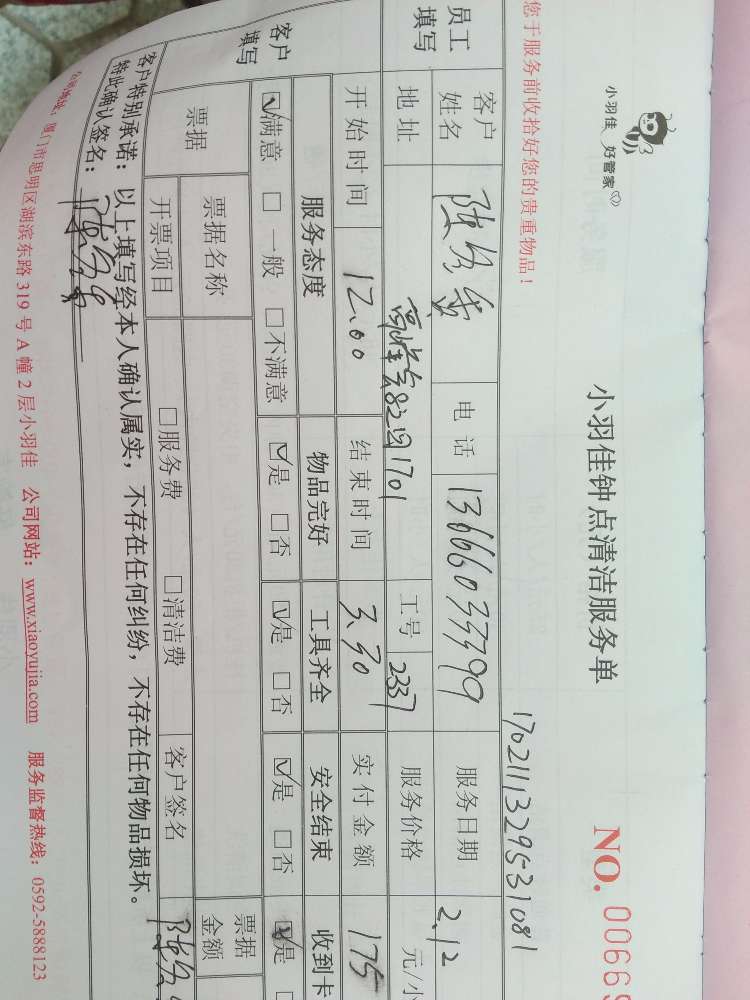 小羽佳 好管家
小羽佳钟点清洁服务单
NO. 00669
您于服务前收拾好您的贵重物品!
1702111329531081
员工填写
客户姓名 电话 13666033799 服务日期 2.12
地址 82 1701 工号 2337 服务价格 元/小
开始时间 12.00 结束时间 3.30 实付金额 175
客户填写
服务态度 物品完好 工具齐全 安全结束 收到卡
☑满意 □一般 □不满意 ☑是 □否 ☑是 □否 ☑是 □否 ☑是
票据 票据名称 票据金额
开票项目 □服务费 □清洁费 客户签名
客户特别承诺:以上填写经本人确认属实,不存在任何纠纷,不存在任何物品损坏。
特此确认签名:
厦门市思明区湖滨东路 319 号 A 幢 2 层小羽佳 公司网站:www.xiaoyujia.com 服务监督热线:0592-5888123